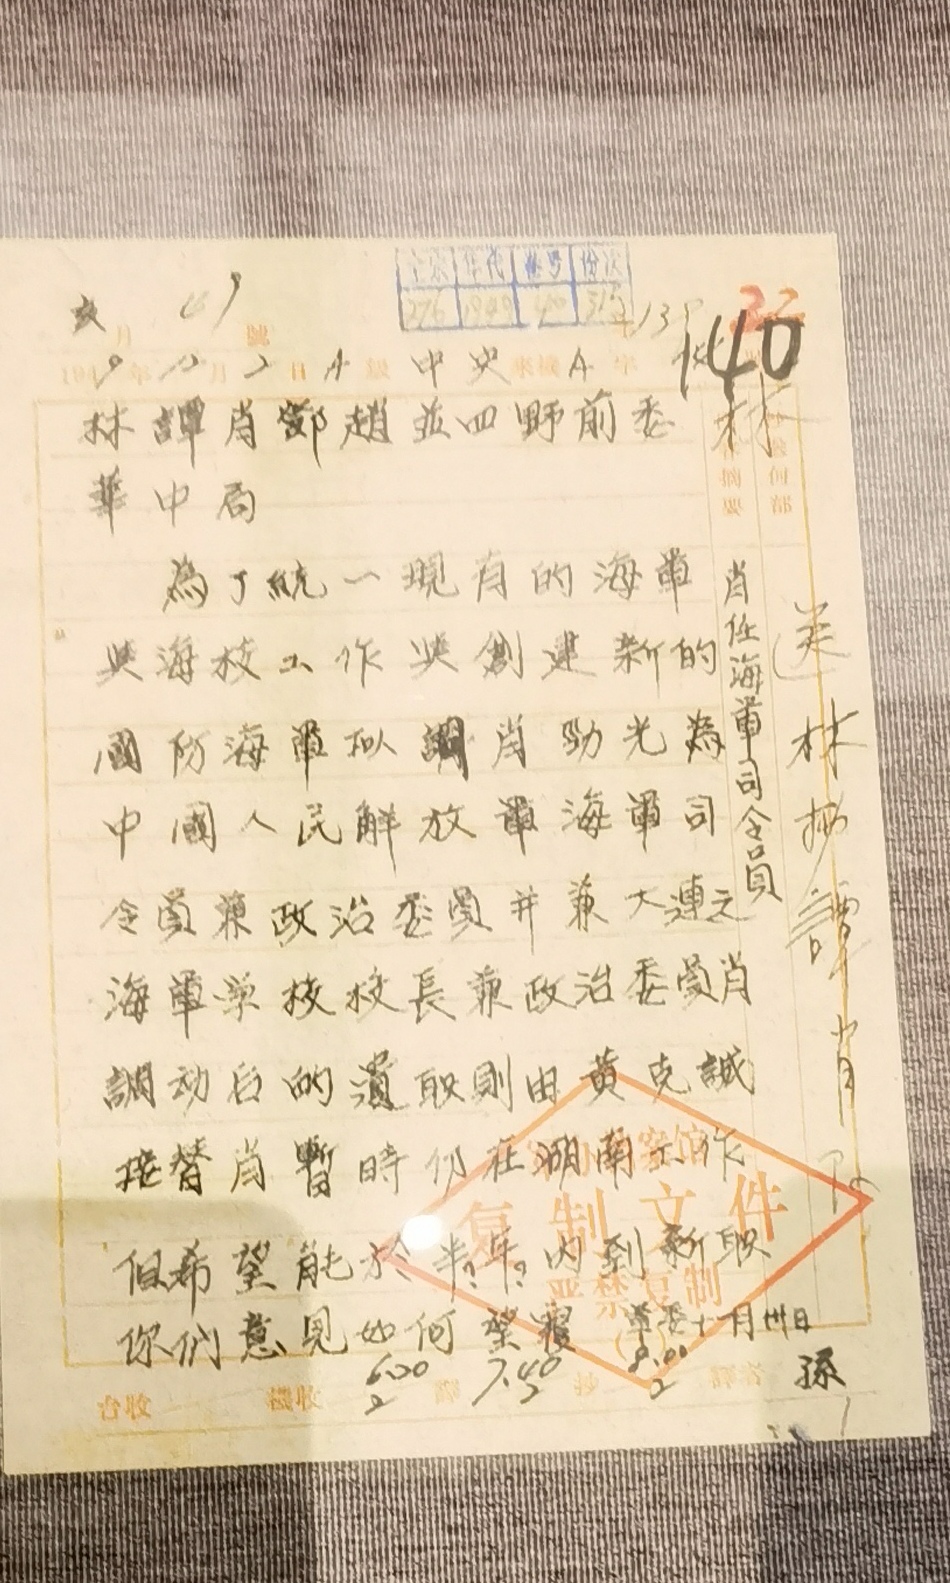 全宗 年代 卷号 份次
276 1949
亥 月 號
1949年12月2日 A 級 中央 來機 A 字
140
林譚肖鄧趙並四野前委
華中局
為了統一現有的海軍
與海校工作與創建新的
國防海軍拟調肖勁光為
中國人民解放軍海軍司
令員兼政治委員并兼大連之
海軍学校校長兼政治委員肖
調动后的遺职則由黄克誠
接替肖暫時仍在湖南工作
但希望能於半?年?内到新职
你們意見如何望覆 軍委十一月卅日
摘要
肖任海軍司令員
林
送林
譚
肖
复制文件
严禁复制
台收 機收 6.00 2 7.40 2 8.00 2
孫